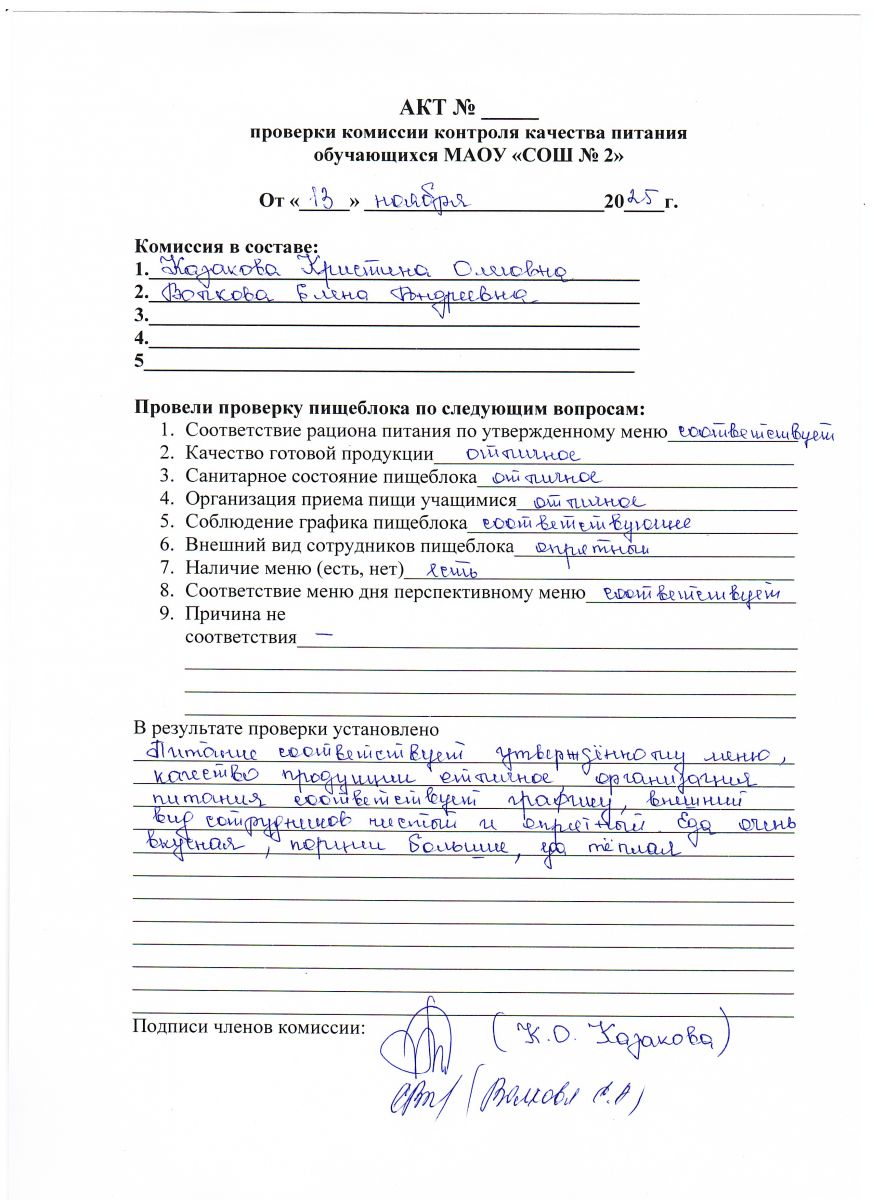 АКТ № _____
проверки комиссии контроля качества питания
обучающихся МАОУ «СОШ № 2»
От « 13 » ноября 2025 г.
Комиссия в составе:
1. Казакова Кристина Олеговна
2. Волкова Елена Андреевна
3.
4.
5
Провели проверку пищеблока по следующим вопросам:
1. Соответствие рациона питания по утвержденному меню соответствует
2. Качество готовой продукции отличное
3. Санитарное состояние пищеблока отличное
4. Организация приема пищи учащимися отличное
5. Соблюдение графика пищеблока соответствующее
6. Внешний вид сотрудников пищеблока опрятный
7. Наличие меню (есть, нет) есть
8. Соответствие меню дня перспективному меню соответствует
9. Причина не
соответствия —
В результате проверки установлено
Питание соответствует утверждённому меню,
качество продукции отличное, организация
питания соответствует графику, внешний
вид сотрудников чистый и опрятный. Еда очень
вкусная, порции большие, еда тёплая
Подписи членов комиссии:
(К.О. Казакова)